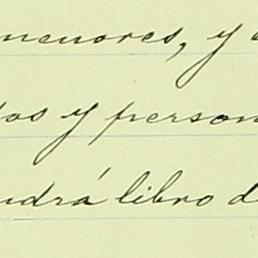 menores, y
dos y person
ndrá libro d